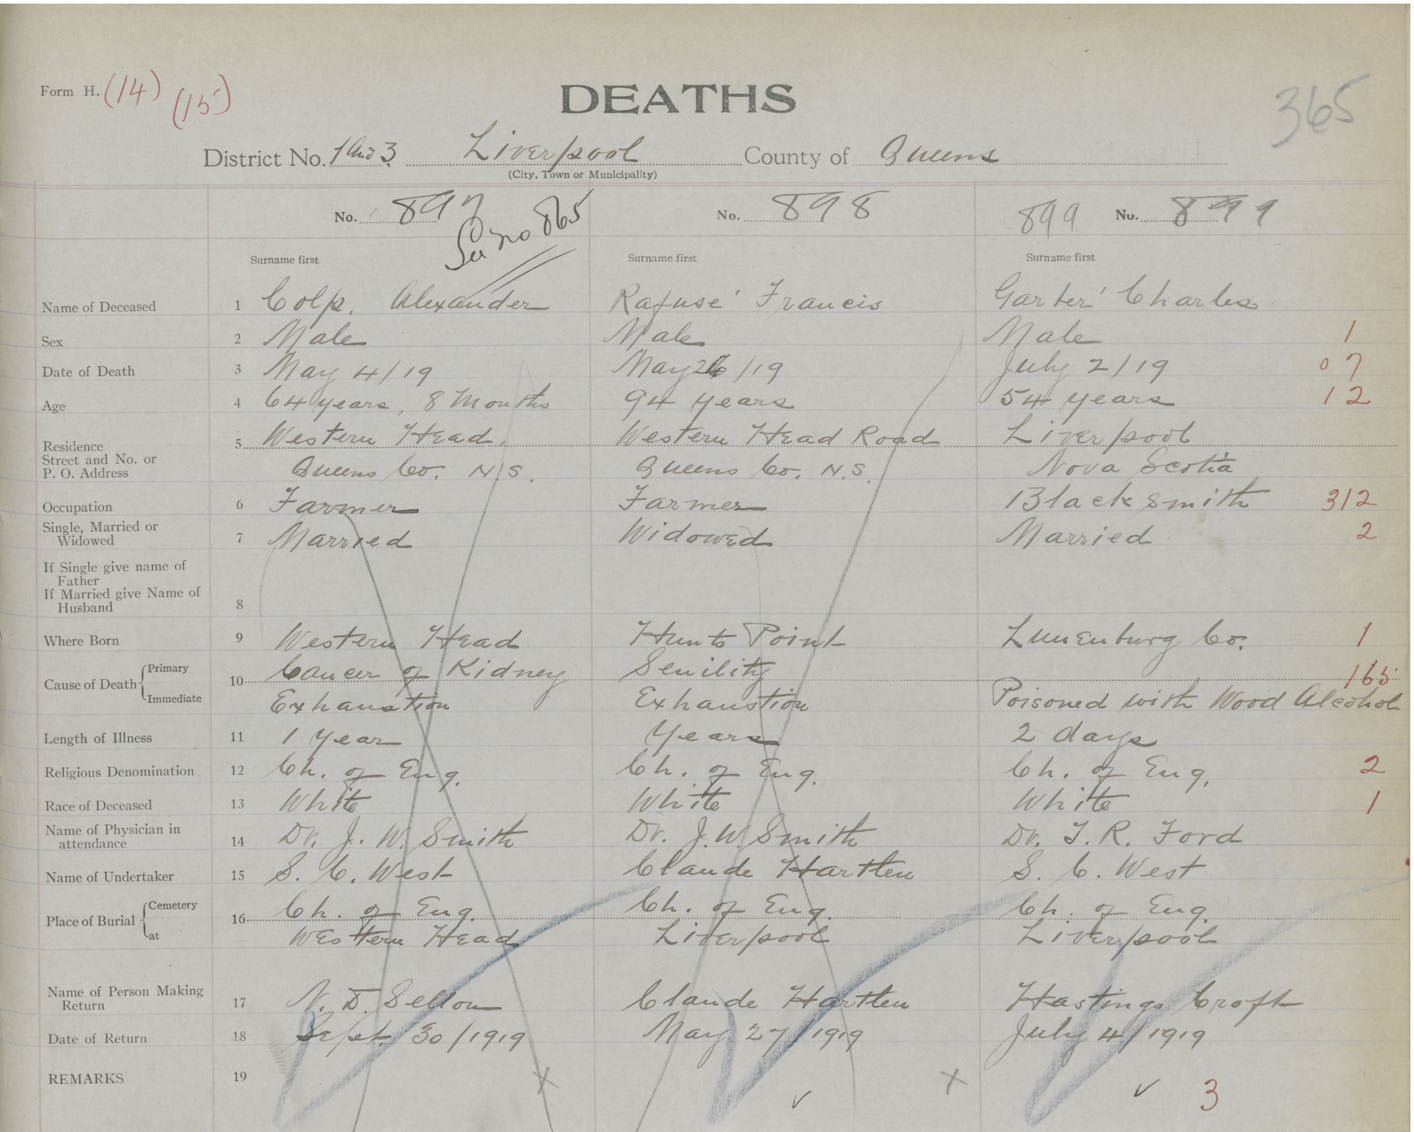 Form H. (14) (15)
DEATHS
365
District No. 1 and 3 Liverpool County of Queens
(City, Town or Municipality)
No. 897 No. 898 899 No. 899
See No 865
Surname first Surname first Surname first
Name of Deceased 1 Colp, Alexander Rafuse' Francis Garber' Charles
Sex 2 Male Male Male 1
Date of Death 3 May 4/19 May 26/19 July 2/19 07
Age 4 64 years, 8 Months 94 years 54 years 12
Residence 5 Western Head, Western Head Road Liverpool
Street and No. or
P. O. Address Queens Co. N.S. Queens Co. N.S. Nova Scotia
Occupation 6 Farmer Farmer Blacksmith 312
Single, Married or
Widowed 7 Married Widowed Married 2
If Single give name of
Father
If Married give Name of
Husband 8
Where Born 9 Western Head Hunts Point Lunenburg Co. 1
Cause of Death Primary 10 Cancer of Kidney Senility 165
Immediate Exhaustion Exhaustion Poisoned with Wood Alcohol
Length of Illness 11 1 Year Years 2 days
Religious Denomination 12 Ch. of Eng. Ch. of Eng. Ch. of Eng. 2
Race of Deceased 13 White White White 1
Name of Physician in
attendance 14 Dr. J. W. Smith Dr. J. W. Smith Dr. T. R. Ford
Name of Undertaker 15 S. C. West Claude Hartlen S. C. West
Place of Burial Cemetery 16 Ch. of Eng. Ch. of Eng. Ch. of Eng.
at Western Head Liverpool Liverpool
Name of Person Making
Return 17 Claude Hartlen Hastings Croft
Date of Return 18 Sept. 30/1919 May 27/1919 July 4/1919
REMARKS 19 x x
✓ ✓ 3